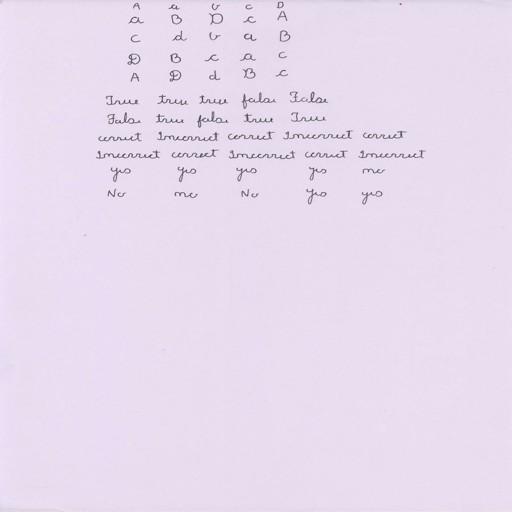 A a b c D
a B D c A
C d b a B
D B c a c
A D d B c
True true true false False
False true false true True
correct Incorrect correct Incorrect correct
Incorrect correct Incorrect correct Incorrect
yes yes yes yes no
No no No Yes yes